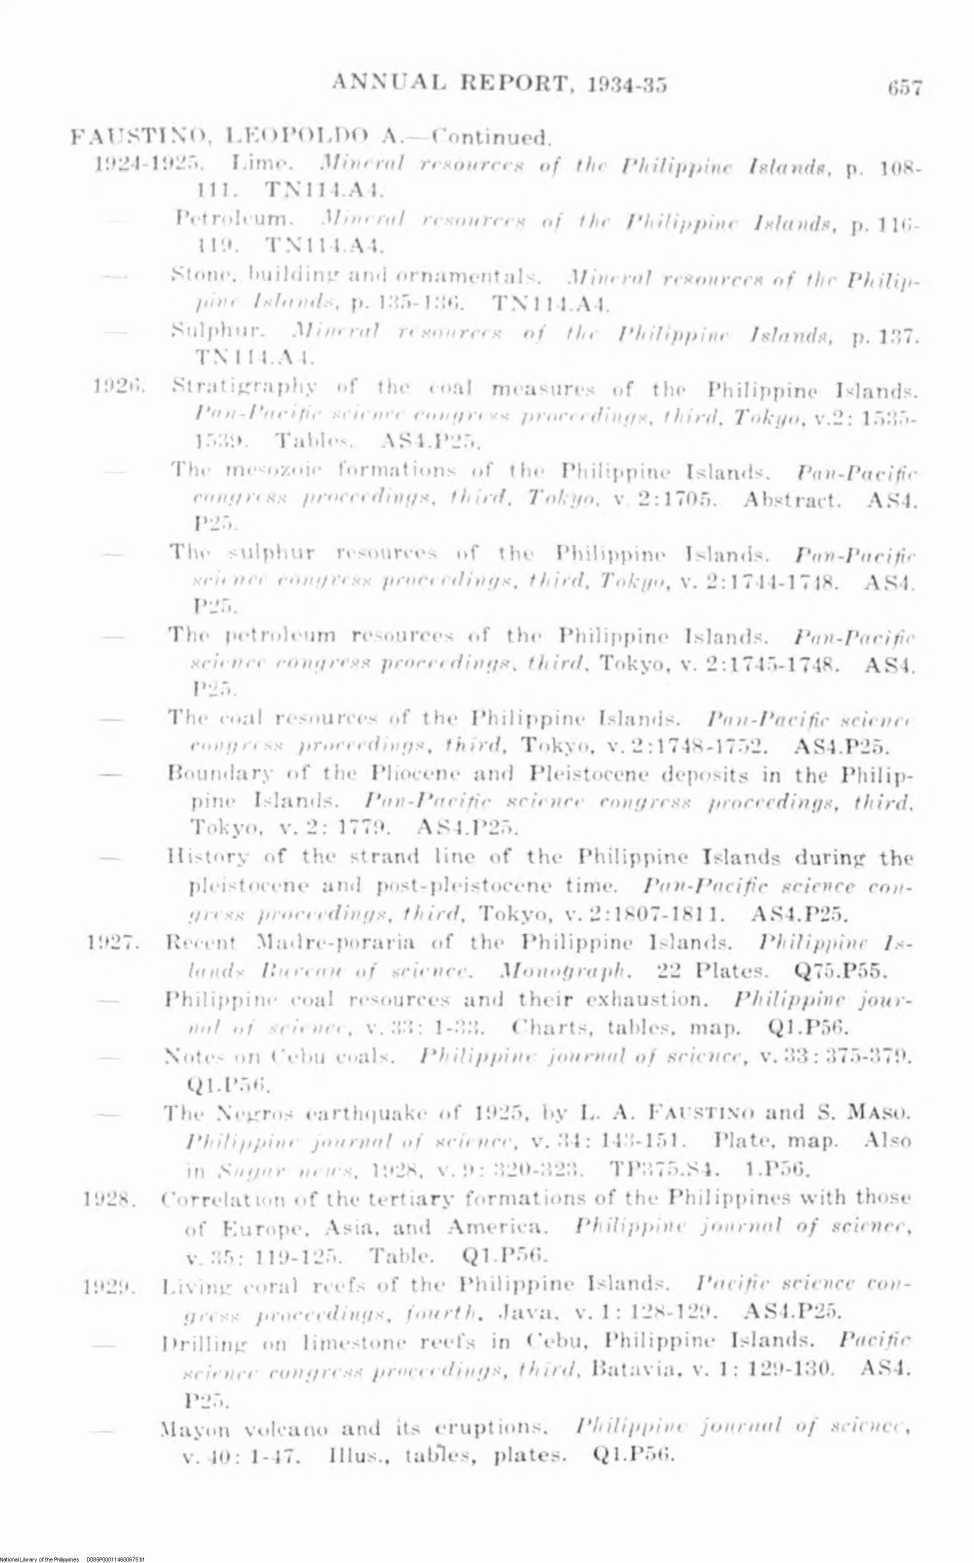 ANNUAL REPORT, 1934-35 657
FAUSTINO, LEOPOLDO A.—Continued.
1924-1925. Lime. Mineral resources of the Philippine Islands, p. 108-
111. TN114.A4.
— Petroleum. Mineral resources of the Philippine Islands, p. 116-
119. TN114.A4.
— Stone, building and ornamentals. Mineral resources of the Philip-
pine Islands, p. 135-136. TN114.A4.
— Sulphur. Mineral resources of the Philippine Islands, p. 137.
TN114.A4.
1926. Stratigraphy of the coal measures of the Philippine Islands.
Pan-Pacific science congress proceedings, third, Tokyo, v.2: 1535-
1539. Tables. AS4.P25.
— The mesozoic formations of the Philippine Islands. Pan-Pacific
congress proceedings, third, Tokyo, v. 2:1705. Abstract. AS4.
P25.
— The sulphur resources of the Philippine Islands. Pan-Pacific
science congress proceedings, third, Tokyo, v. 2:1744-1748. AS4.
P25.
— The petroleum resources of the Philippine Islands. Pan-Pacific
science congress proceedings, third, Tokyo, v. 2:1745-1748. AS4.
P25.
— The coal resources of the Philippine Islands. Pan-Pacific science
congress proceedings, third, Tokyo, v. 2:1748-1752. AS4.P25.
— Boundary of the Pliocene and Pleistocene deposits in the Philip-
pine Islands. Pan-Pacific science congress proceedings, third,
Tokyo, v. 2: 1779. AS4.P25.
— History of the strand line of the Philippine Islands during the
pleistocene and post-pleistocene time. Pan-Pacific science con-
gress proceedings, third, Tokyo, v. 2:1807-1811. AS4.P25.
1927. Recent Madre-poraria of the Philippine Islands. Philippine Is-
lands Bureau of science. Monograph. 22 Plates. Q75.P55.
— Philippine coal resources and their exhaustion. Philippine jour-
nal of science, v. 33: 1-33. Charts, tables, map. Q1.P56.
— Notes on Cebu coals. Philippine journal of science, v. 33: 375-379.
Q1.P56.
— The Negros earthquake of 1925, by L. A. FAUSTINO and S. MASO.
Philippine journal of science, v. 34: 143-151. Plate, map. Also
in Sugar news, 1928, v. 9: 320-323. TP375.S4. 1.P56.
1928. Correlation of the tertiary formations of the Philippines with those
of Europe, Asia, and America. Philippine journal of science,
v. 35: 119-125. Table. Q1.P56.
1929. Living coral reefs of the Philippine Islands. Pacific science con-
gress proceedings, fourth, Java, v. 1: 128-129. AS4.P25.
— Drilling on limestone reefs in Cebu, Philippine Islands. Pacific
science congress proceedings, third, Batavia, v. 1: 129-130. AS4.
P25.
— Mayon volcano and its eruptions. Philippine journal of science,
v. 40: 1-47. Illus., tables, plates. Q1.P56.
National Library of the Philippines